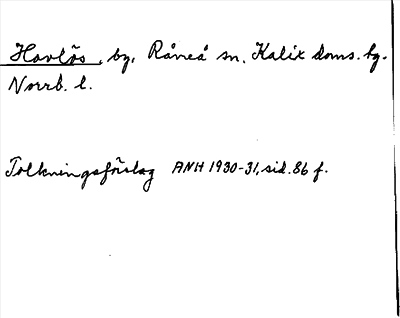 Havlös, by, Råneå sn, Kalix doms. hg.
Norrb. l.
Tolkningsförslag ANH 1930-31, sid. 86 f.